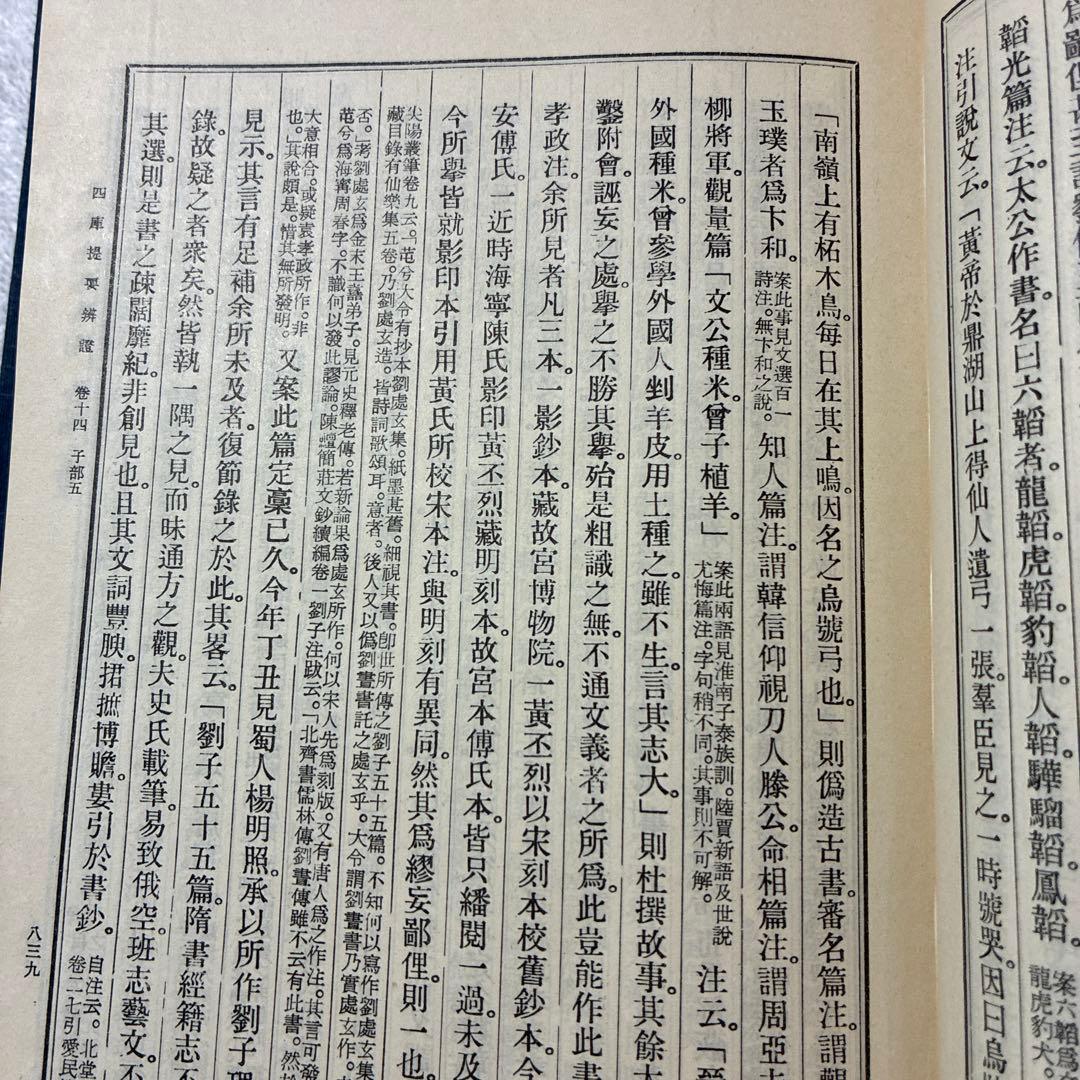 韜光篇注云。太公作書。名曰六韜者。龍韜虎韜豹韜人韜驊騮韜鳳韜。
案六韜爲
龍虎豹犬。
注引說文云。「黃帝於鼎湖山上得仙人遺弓一張。羣臣見之。一時號哭。因曰烏
「南嶺上有柘木鳥。每日在其上鳴。因名之烏號弓也。」則僞造古書。審名篇注。謂
玉璞者爲卞和。
案此事見文選百一
詩注。無卞和之說。
知人篇注。謂韓信仰視刀人滕公。命相篇注。謂周亞
柳將軍。觀量篇「文公種米。曾子植羊。」
案此兩語見淮南子泰族訓。陸賈新語及世說
尤悔篇注。字句稍不同。其事則不可解。
注云。「
外國種米。曾參學外國人剉羊皮。用土種之。雖不生。言其志大。」則杜撰故事。其餘
鑿附會。誣妄之處。舉之不勝其舉。殆是粗識之無。不通文義者之所爲。此豈能作此書
孝政注。余所見者凡三本。一影鈔本。藏故宮博物院。一黃丕烈以宋刻本校舊鈔本。今
安傅氏。一近時海寧陳氏影印黃丕烈藏明刻本。故宮本傅氏本。皆只繙閱一過。未及
今所舉皆就影印本引用黃氏所校宋本注。與明刻有異同。然其爲繆妄鄙俚。則一也。
尖陽叢筆卷九云。「茝兮大令有抄本劉處玄集。紙墨甚舊。細視其書。卽世所傳之劉子五十五篇。不知何以寫作劉處玄集
藏目錄有仙樂集五卷。乃劉處玄造。皆詩詞歌頌耳。意者。後人又以僞劉晝書託之處玄乎。大令謂劉晝書乃實處玄作。
否。」考劉處玄爲金末王嚞弟子。見元史釋老傳。若新論果爲處玄所作。何以宋人先爲刻版。又有唐人爲之作注。其言可發
茝兮爲海寧周春字。不識何以發此謬論。陳鱣簡莊文鈔續編卷一劉子注跋云。「北齊書儒林傳劉晝傳雖不云有此書。然
大意相合。或疑袁孝政所作。非
也。」其說頗是。惜其無所發明。
又案此篇定稾已久。今年丁丑見蜀人楊明照。承以所作劉子理
見示。其言有足補余所未及者。復節錄之於此。其畧云。「劉子五十五篇。隋書經籍志不
錄。故疑之者衆矣。然皆執一隅之見。而昧通方之觀。夫史氏載筆。易致俄空。班志藝文。不
其選。則是書之疎闊靡紀。非創見也。且其文詞豐腴。捃摭博贍。婁引於書鈔。
自注云。北堂
卷二七引愛民
四庫提要辨證 卷十四 子部五
八三九